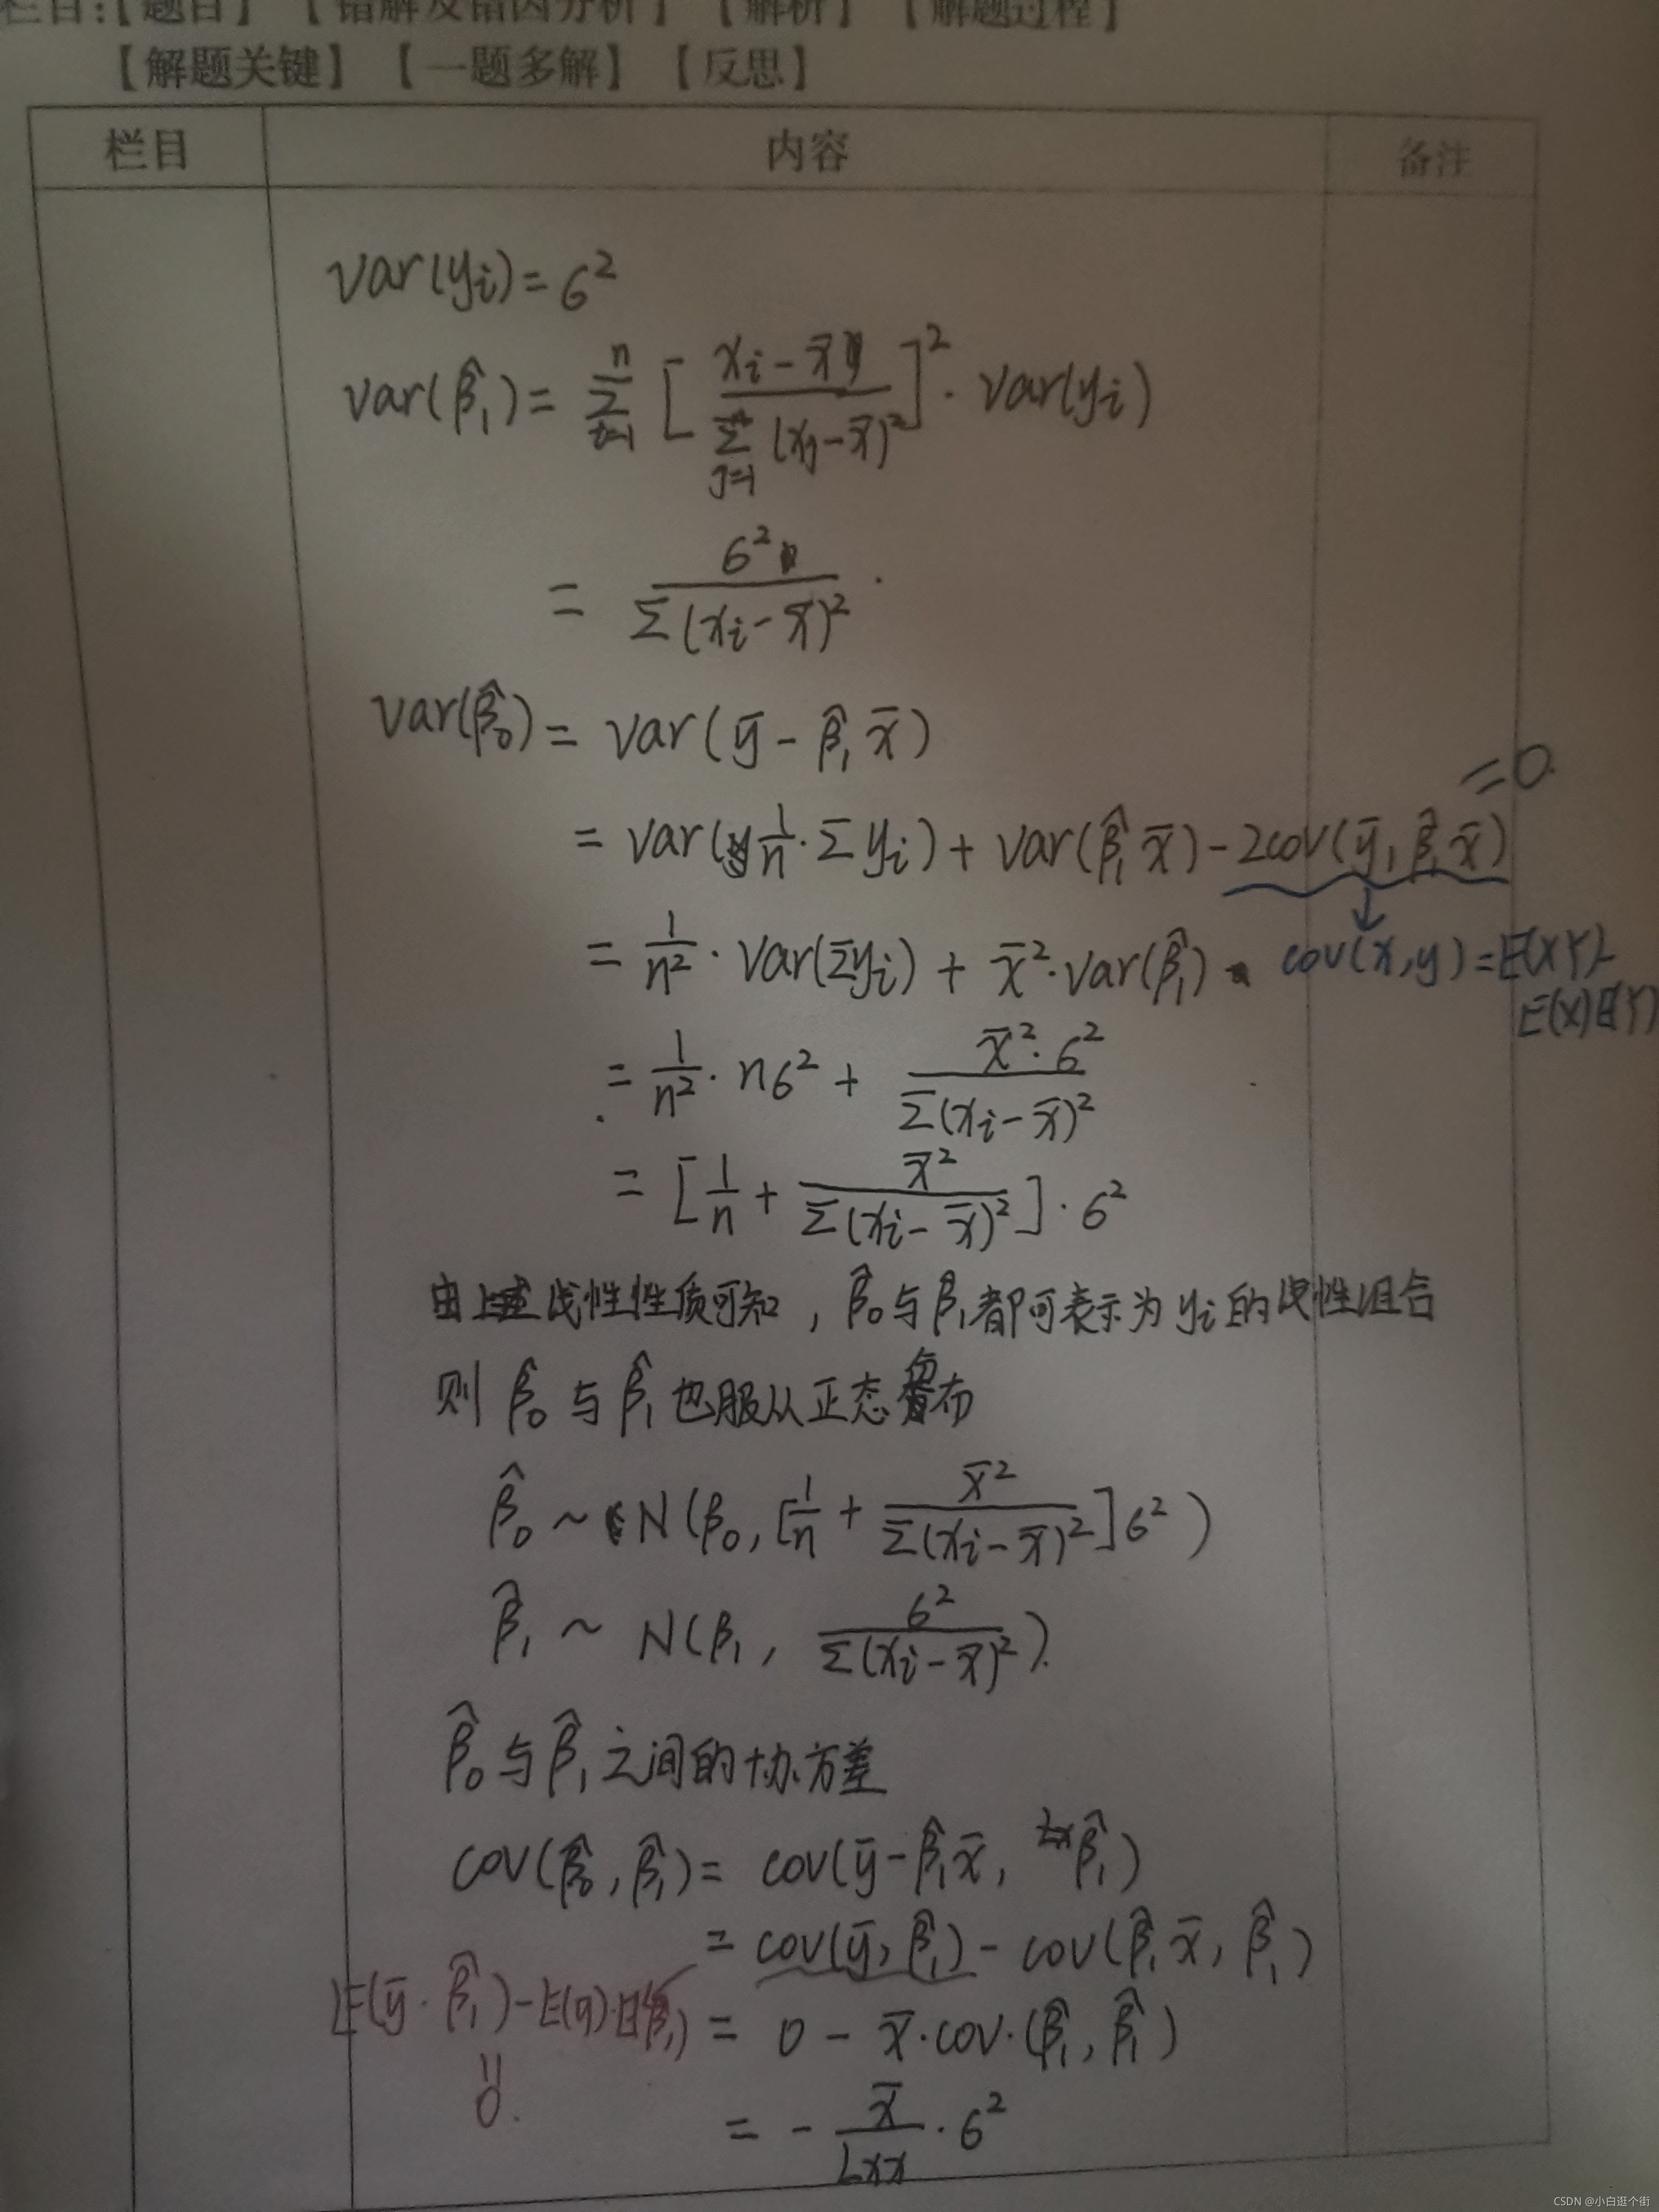 栏目:【题目】 【错解及错因分析】 【解析】 【解题过程】
【解题关键】 【一题多解】 【反思】
栏目 内容 备注
var(yi) = 6²
var(β̂₁) = Σⁿᵢ₌₁ [ (xi - x̄) / Σⁿⱼ₌₁(xj - x̄)² ]² · var(yi)
= 6² / Σ(xi - x̄)² ·
var(β̂₀) = var(ȳ - β̂₁x̄)
= 0.
= var(1/n · Σyi) + var(β̂₁x̄) - 2cov(ȳ, β̂₁x̄)
= 1/n² · var(Σyi) + x̄² · var(β̂₁)
cov(x,y) = E(XY) -
E(X)E(Y)
= 1/n² · n6² + x̄²·6² / Σ(xi - x̄)²
= [1/n + x̄² / Σ(xi - x̄)²] · 6²
由上述线性性质可知, β̂₀与β̂₁都可表示为yi的线性组合
则β̂₀与β̂₁也服从正态分布
β̂₀ ~ N(β₀, [1/n + x̄² / Σ(xi - x̄)²]6²)
β̂₁ ~ N(β₁, 6² / Σ(xi - x̄)²).
β̂₀与β̂₁之间的协方差
cov(β̂₀, β̂₁) = cov(ȳ - β̂₁x̄, β̂₁)
= cov(ȳ, β̂₁) - cov(β̂₁x̄, β̂₁)
E(ȳ·β̂₁) - E(ȳ)·E(β̂₁)
= 0 - x̄·cov·(β̂₁, β̂₁)
=
0.
= - x̄ / Lxx · 6²
CSDN @小白逛个街